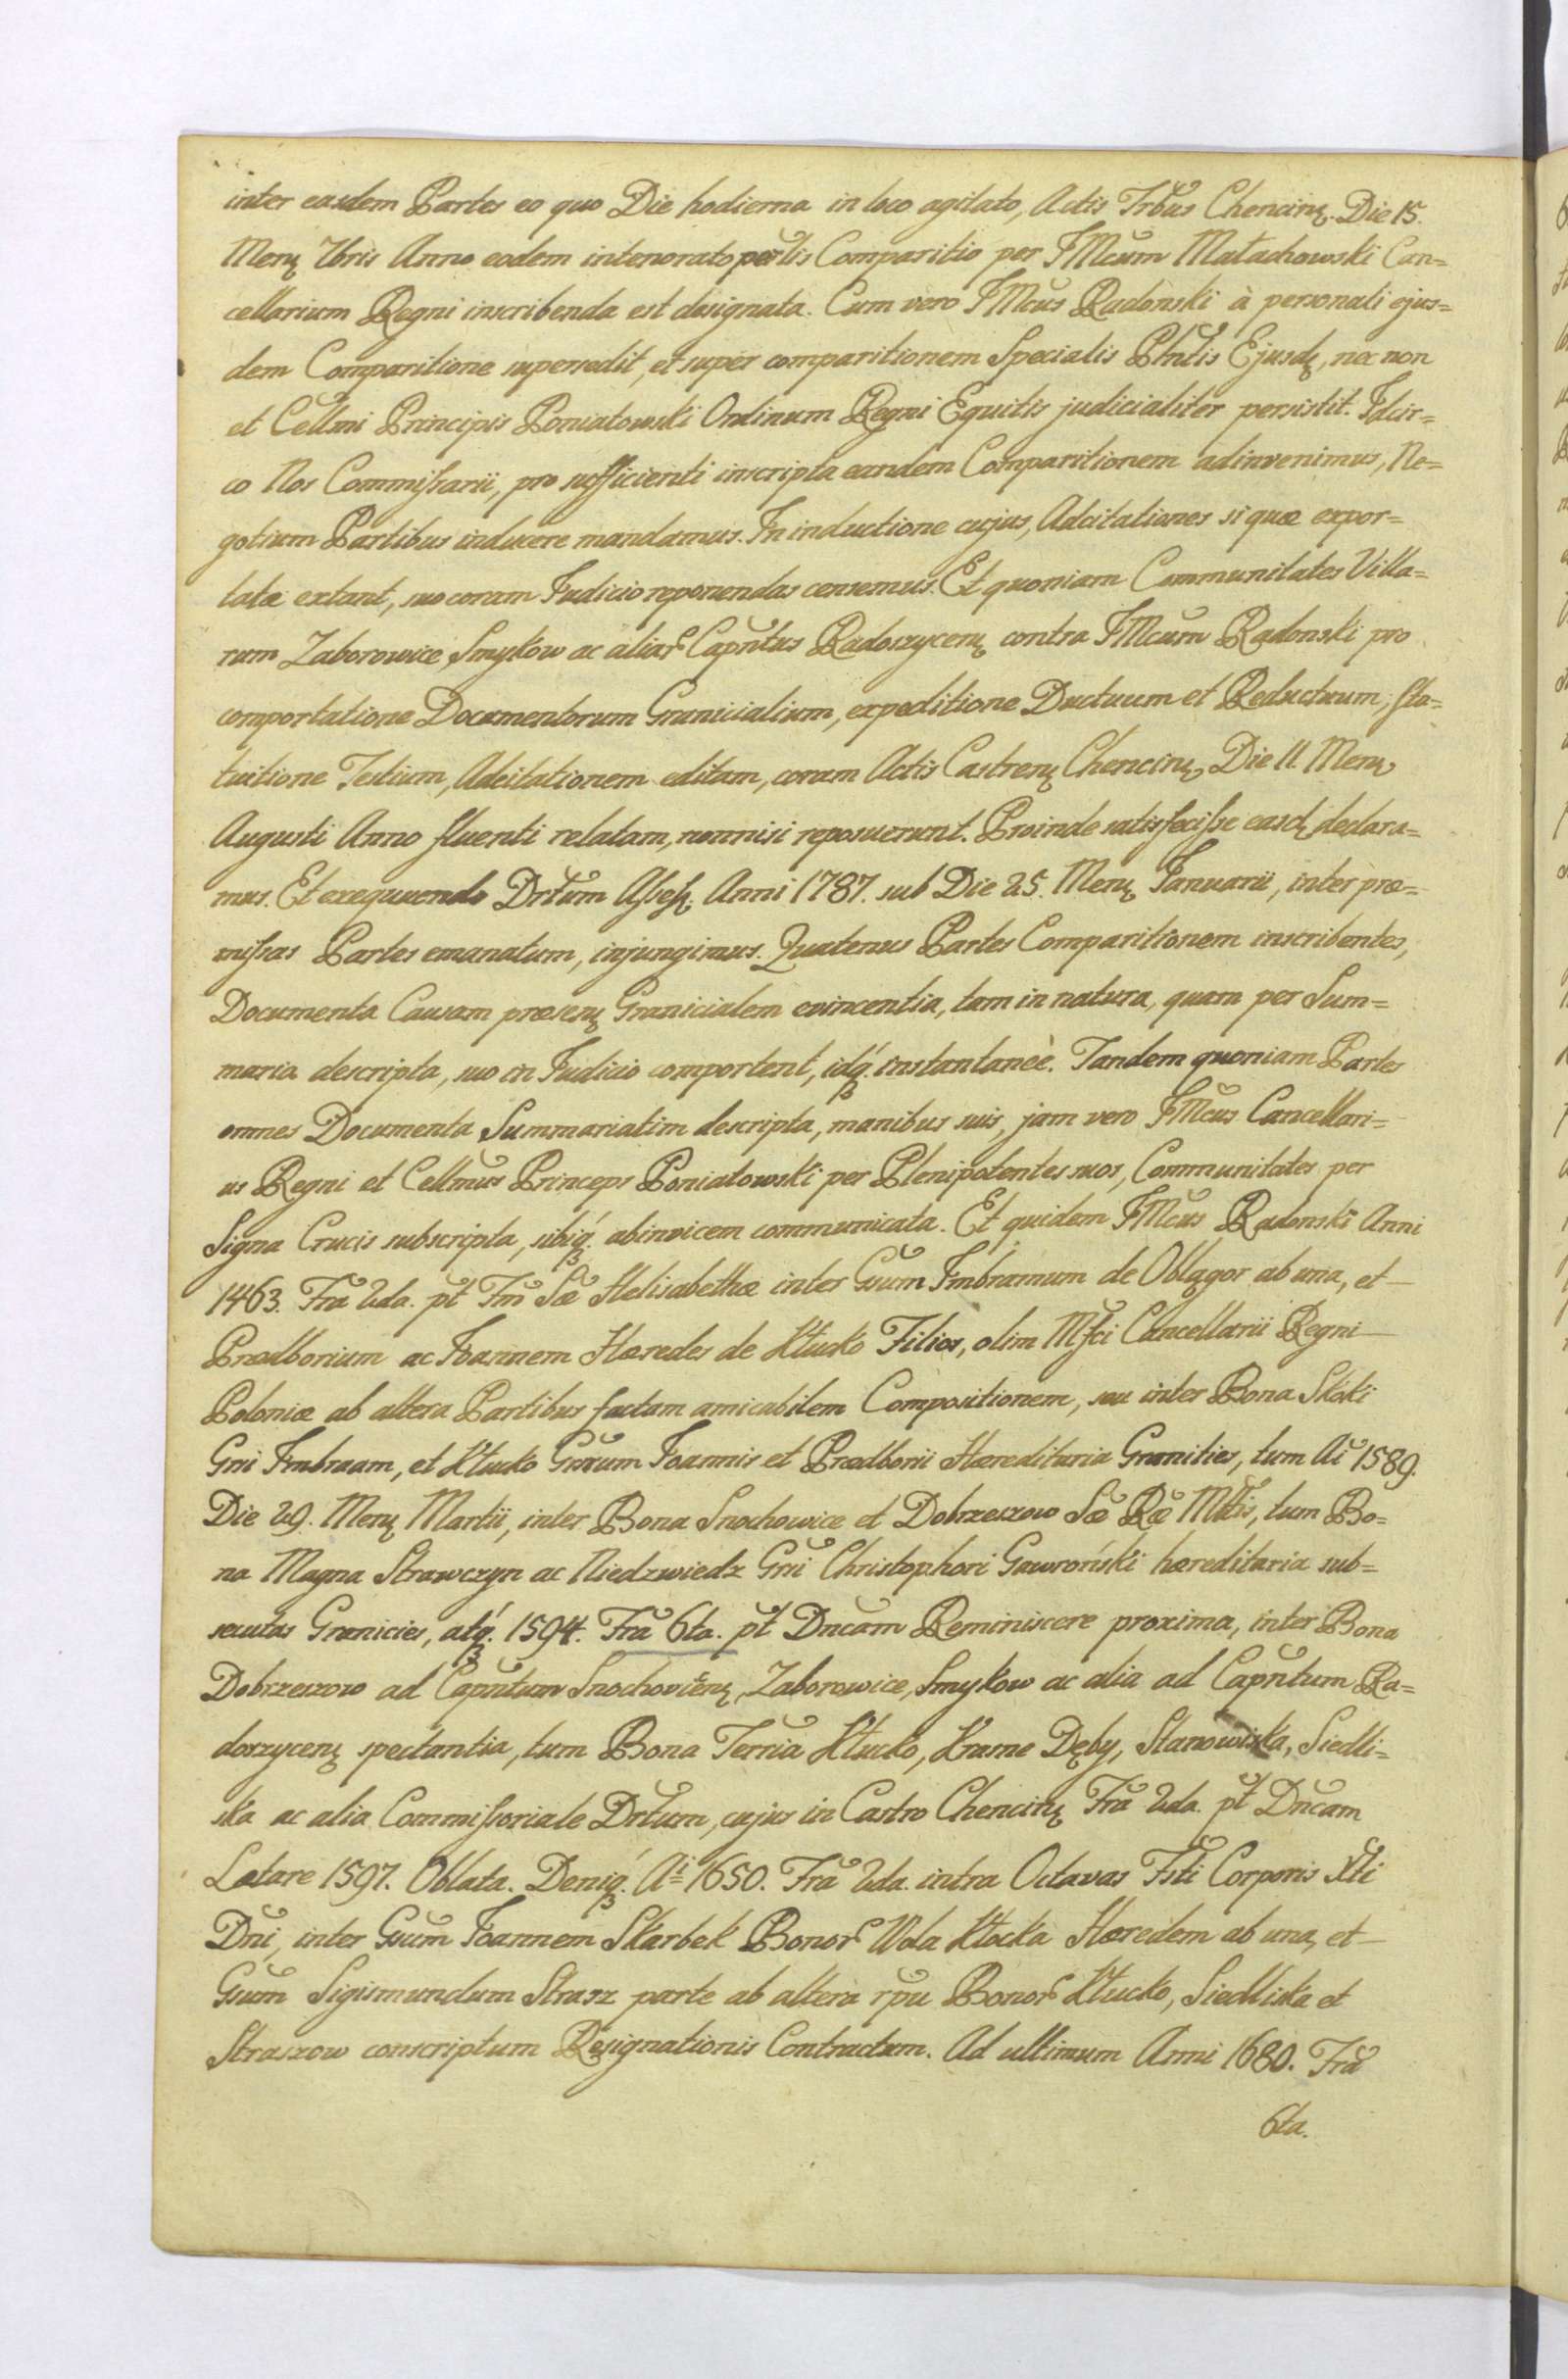 inter easdem Partes eo quo Die hodierna in loco agitato, Actis Trbus Chencinę. Die 15.
Mensę 7bris Anno eodem intenorato peultis Comparitio per JMcum Małachowski Can=
cellarium Regni inscribenda est designata. Cum vero JMcus Radonski à personali ejus=
dem Comparitione supersedit, et super comparitionem Specialis Plntis Ejusdę, nec non
et Cellmi Principis Poniatowski Ordinum Regni Equitis judicialiter persistit. Idcir=
co Nos Commissarii, pro sufficienti inscripta eandem Comparitionem adinvenimus, Ne=
gotium Partibus inducere mandamus. In inductione cujus, Adcitationes si quæ expor=
tatæ extant, suo coram Judicio reponendas censemus. Et quoniam Communitates Villa=
rum Zaborowice, Smyków ac aliar Capntus Radoszycenę contra JMcum Radonski pro
comportatione Documentorum Granicialium, expeditione Ductuum et Reductuum, sta=
tuitione Testium, Adcitationem editam, coram Actis Castrenę Chencinę, Die 11. Menę
Augusti Anno fluenti relatam, nonnisi reposuerunt. Proinde satisfecisse easdę declara=
mus. Et exequuendo Drtum Assess. Anni 1787. sub Die 25. Menę Januarii, inter præ=
missas Partes emanatum, injungimus. Quatenus Partes Comparitionem inscribentes,
Documenta Causam præsenę Granicialem evincentia, tam in natura, quam per Sum=
maria descripta, suo in Judicio comportent, idq́. instantaneè. Tandem quoniam Partes
omnes Documenta Summariatim descripta, manibus suis, jam vero JMcus Cancellari=
us Regni et Cellmus Princeps Poniatowski per Plenipotentes suos, Communitates per
Signa Crucis subscripta, sibiq́. abinvicem communicata. Et quidem JMcus Radonski Anni
1463. Fra 2da. pt Fm Sæ Helisabethæ inter Gsum Imbramum de Oblągor ab una, et
Prædborium ac Joannem Hæredes de Kłucko Filios, olim Mfci Cancellarii Regni
Poloniæ ab altera Partibus factam amicabilem Compositionem, seu inter Bona Skóki
Gni Imbraam, et Kłucko Gsorum Joannis et Prædborii Hæreditaria Granities, tum Ai 1589.
Die 29. Menę Martii, inter Bona Snochowice et Dobrzeszow Sæ Ræ Mttis, tum Bo=
na Magna Strawczyn ac Niedzwiedz Gni Christophori Gawroński hæreditaria sub=
secutas Granicies, atq́. 1594. Fra 6ta. pt Dncam Reminiscere proxima, inter Bona
Dobrzeszow ad Capntum Snochovicenę, Zaborowice, Smykow ac alia ad Capntum Ra=
doszycenę spectantia, tum Bona Terria Kłucko, Krasne Dęby, Stanowiska, Siedli=
ska ac alia Commissoriale Drtum, cujus in Castro Chencinę Fra 2da. pt Dncam
Lætare 1597. Oblata. Deniq́. Ai 1650. Fra 2da. intra Octavas Fsti Corporis Xti
Dni, inter Gsum Joannem Skarbek Bonor Wola Kłocka Hæredem ab una, et
Gsum Sigismundum Strasz parte ab altera rpu Bonor Kłucko, Siedliska et
Straszow conscriptum Resignationis Contractum. Ad ultimum Anni 1680. Fra
6ta.